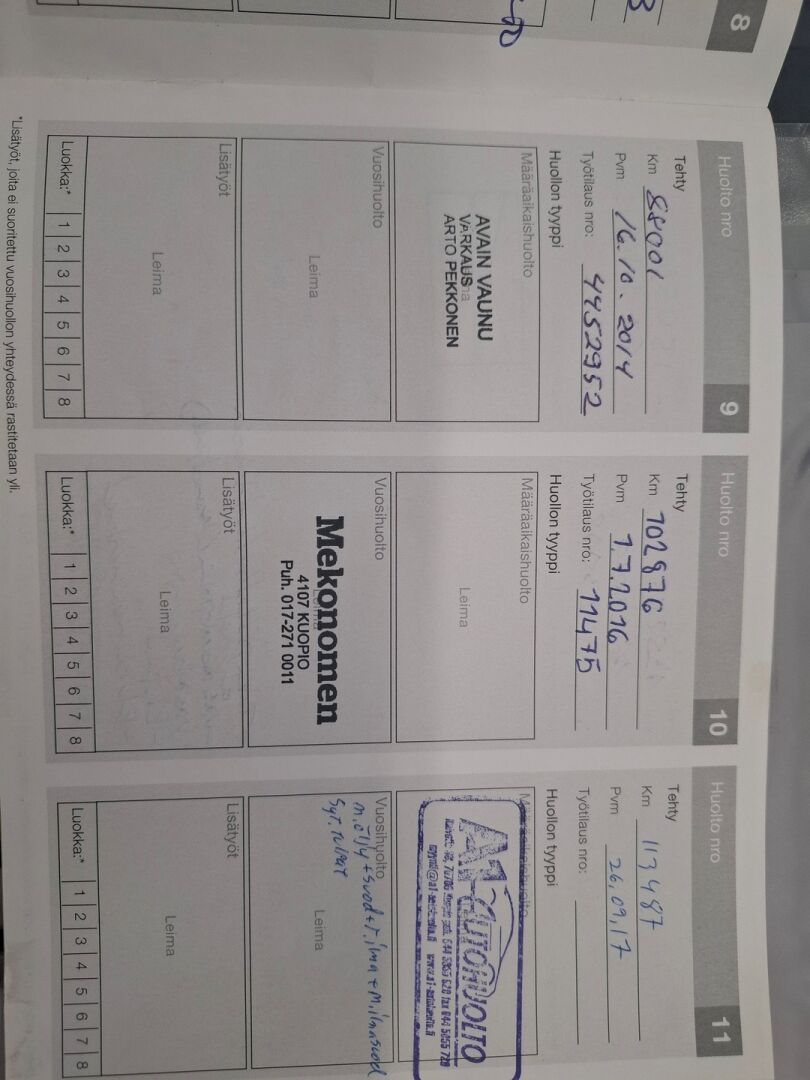 8
Huolto nro 9
Tehty
Km 88001
Pvm 16.10.2014
Työtilaus nro: 4452952
Huollon tyyppi
Määräaikaishuolto
AVAIN VAUNU
VARKAUS
ARTO PEKKONEN
Vuosihuolto
Leima
Lisätyöt
Leima
Luokka:* 1 2 3 4 5 6 7 8
Huolto nro 10
Tehty
Km 102876
Pvm 1.7.2016
Työtilaus nro: 11475
Huollon tyyppi
Määräaikaishuolto
Leima
Vuosihuolto
Mekonomen
4107 KUOPIO
Puh. 017-271 0011
Lisätyöt
Leima
Luokka:* 1 2 3 4 5 6 7 8
Huolto nro 11
Tehty
Km 113487
Pvm 26.09.17
Työtilaus nro:
Huollon tyyppi
Määräaikaishuolto
A1-AUTOHUOLTO
Vuosihuolto
m.öljy + suod + r.ilma + m.ilmasuod
Syt. tulpat
Leima
Lisätyöt
Leima
Luokka:* 1 2 3 4 5 6 7 8
*Lisätyöt, joita ei suoritettu vuosihuollon yhteydessä rastitetaan yli.